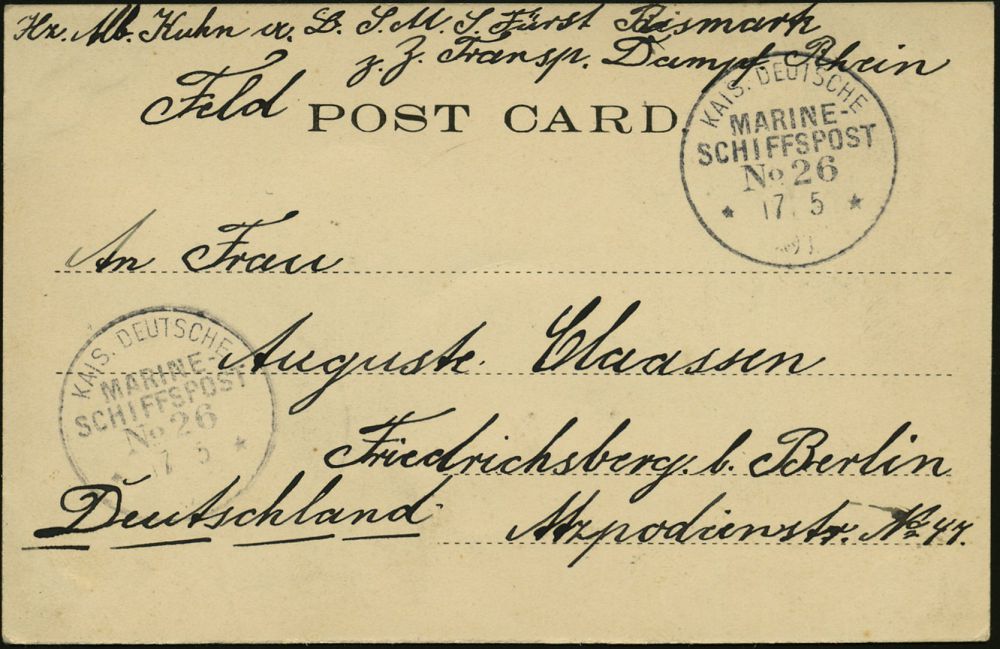 Hz. Alb. Kuhn a. L. S. M. S. Fürst Bismark
z. Z. Transp. Dampf. Rhein
Feld
POST CARD
KAIS. DEUTSCHE
MARINE-
SCHIFFSPOST
No 26
* 17. 5 *
An Frau
KAIS. DEUTSCHE
MARINE-
SCHIFFSPOST
No 26
* 17 5 *
Auguste Claassen
Friedrichsberg. b. Berlin
Deutschland
No 47.